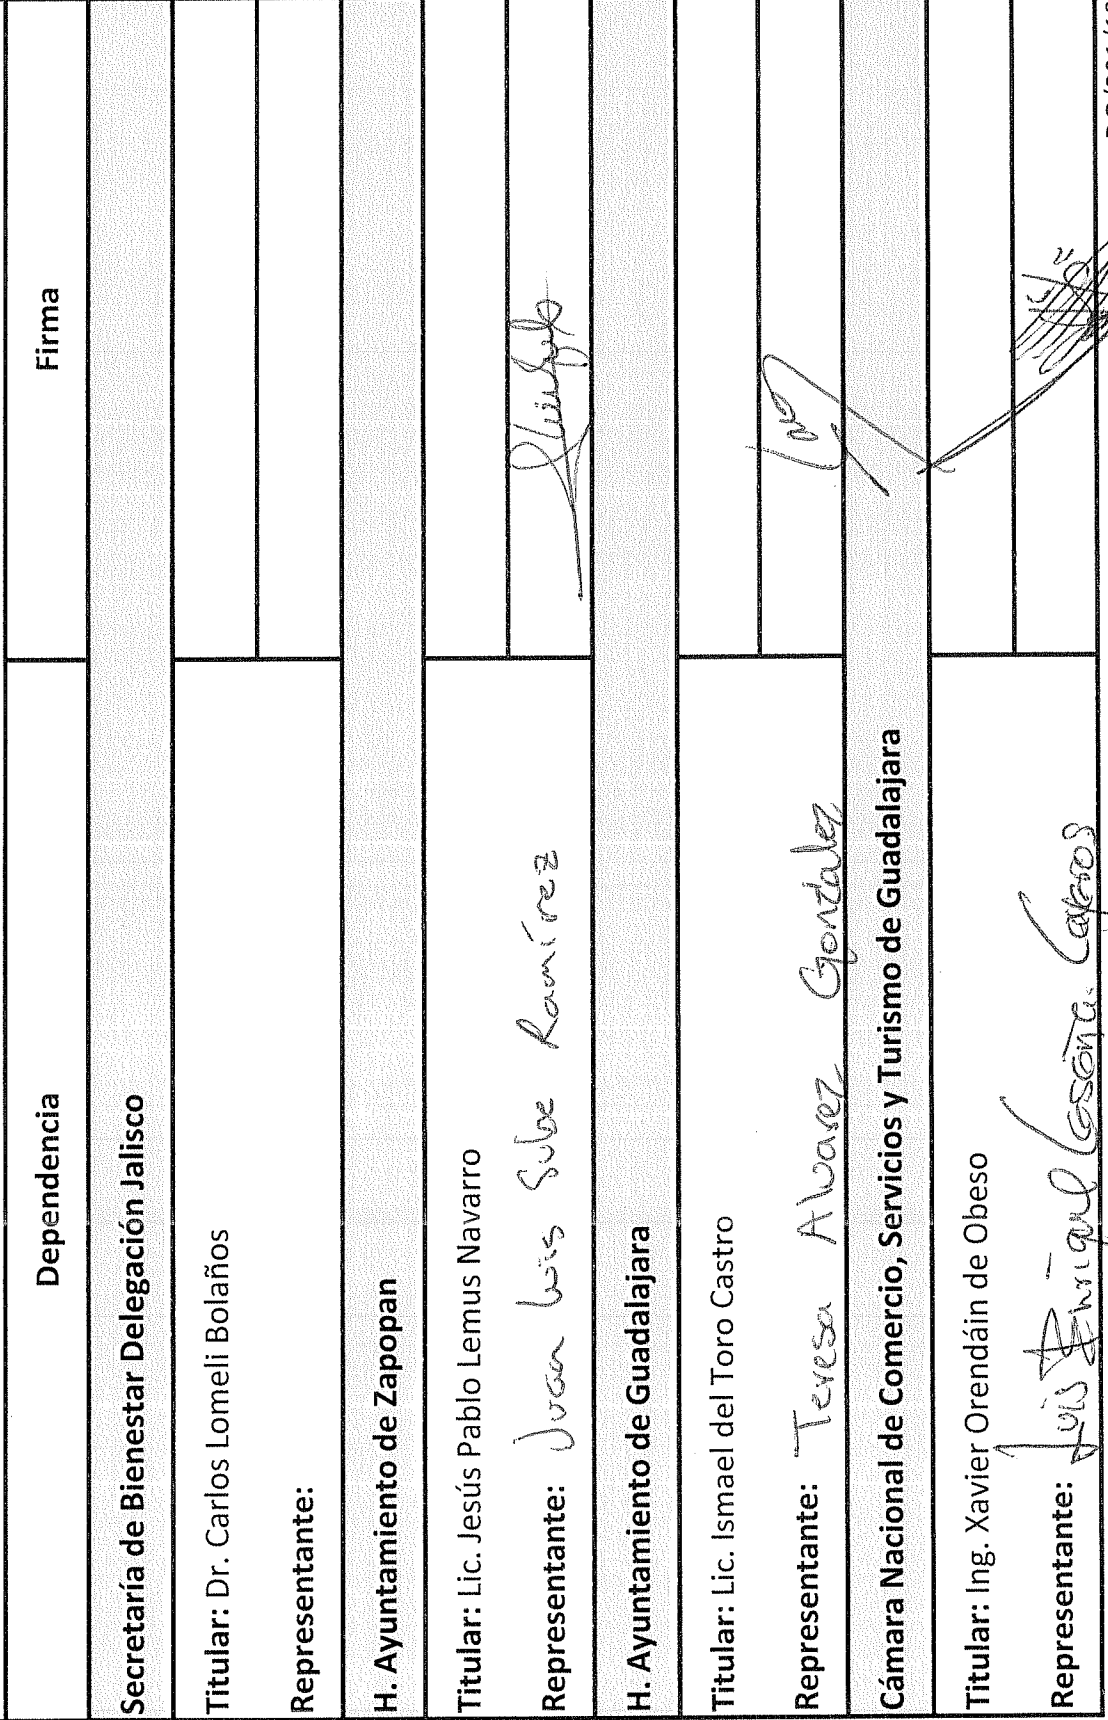 Dependencia Firma
Secretaría de Bienestar Delegación Jalisco
Titular: Dr. Carlos Lomeli Bolaños
Representante:
H. Ayuntamiento de Zapopan
Titular: Lic. Jesús Pablo Lemus Navarro
Representante: Juan Luis Sube Ramírez
H. Ayuntamiento de Guadalajara
Titular: Lic. Ismael del Toro Castro
Representante: Teresa Alvarez Gonzalez
Cámara Nacional de Comercio, Servicios y Turismo de Guadalajara
Titular: Ing. Xavier Orendáin de Obeso
Representante: Luis Enrique